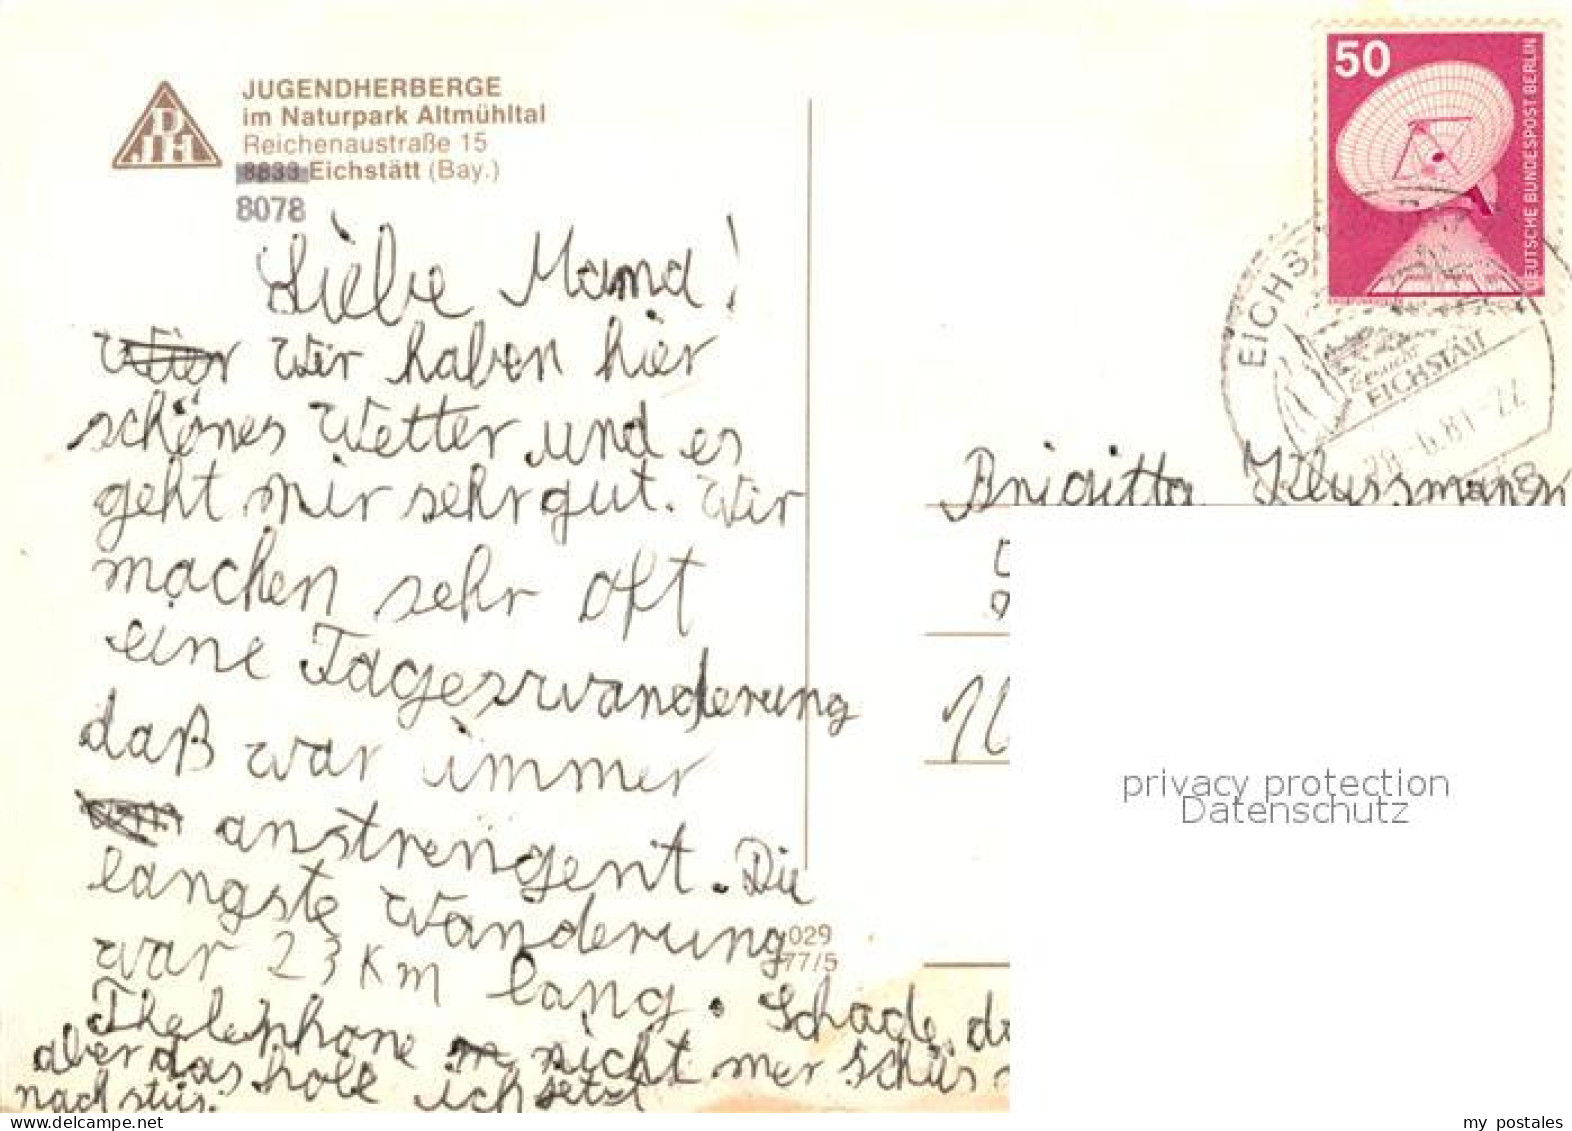 JUGENDHERBERGE
im Naturpark Altmühltal
Reichenaustraße 15
8833 Eichstätt (Bay.)
8078
50
DEUTSCHE BUNDESPOST BERLIN
EICHS
EICHSTÄTT
28.-6.81-22
Liebe Mama!
wir haben hier
schönes Wetter und es
geht mir sehr gut. Wir
machen sehr oft
eine Tageswanderung
daß war immer
anstrengent. Die
langste Wanderung
war 23 Km lang. Schade, da
Thelephone nicht mer schüs
aber das holt ich jetzt
nach
Brigitta Klussmann
029
77/5
privacy protection
Datenschutz
www.delcampe.net
my_postales